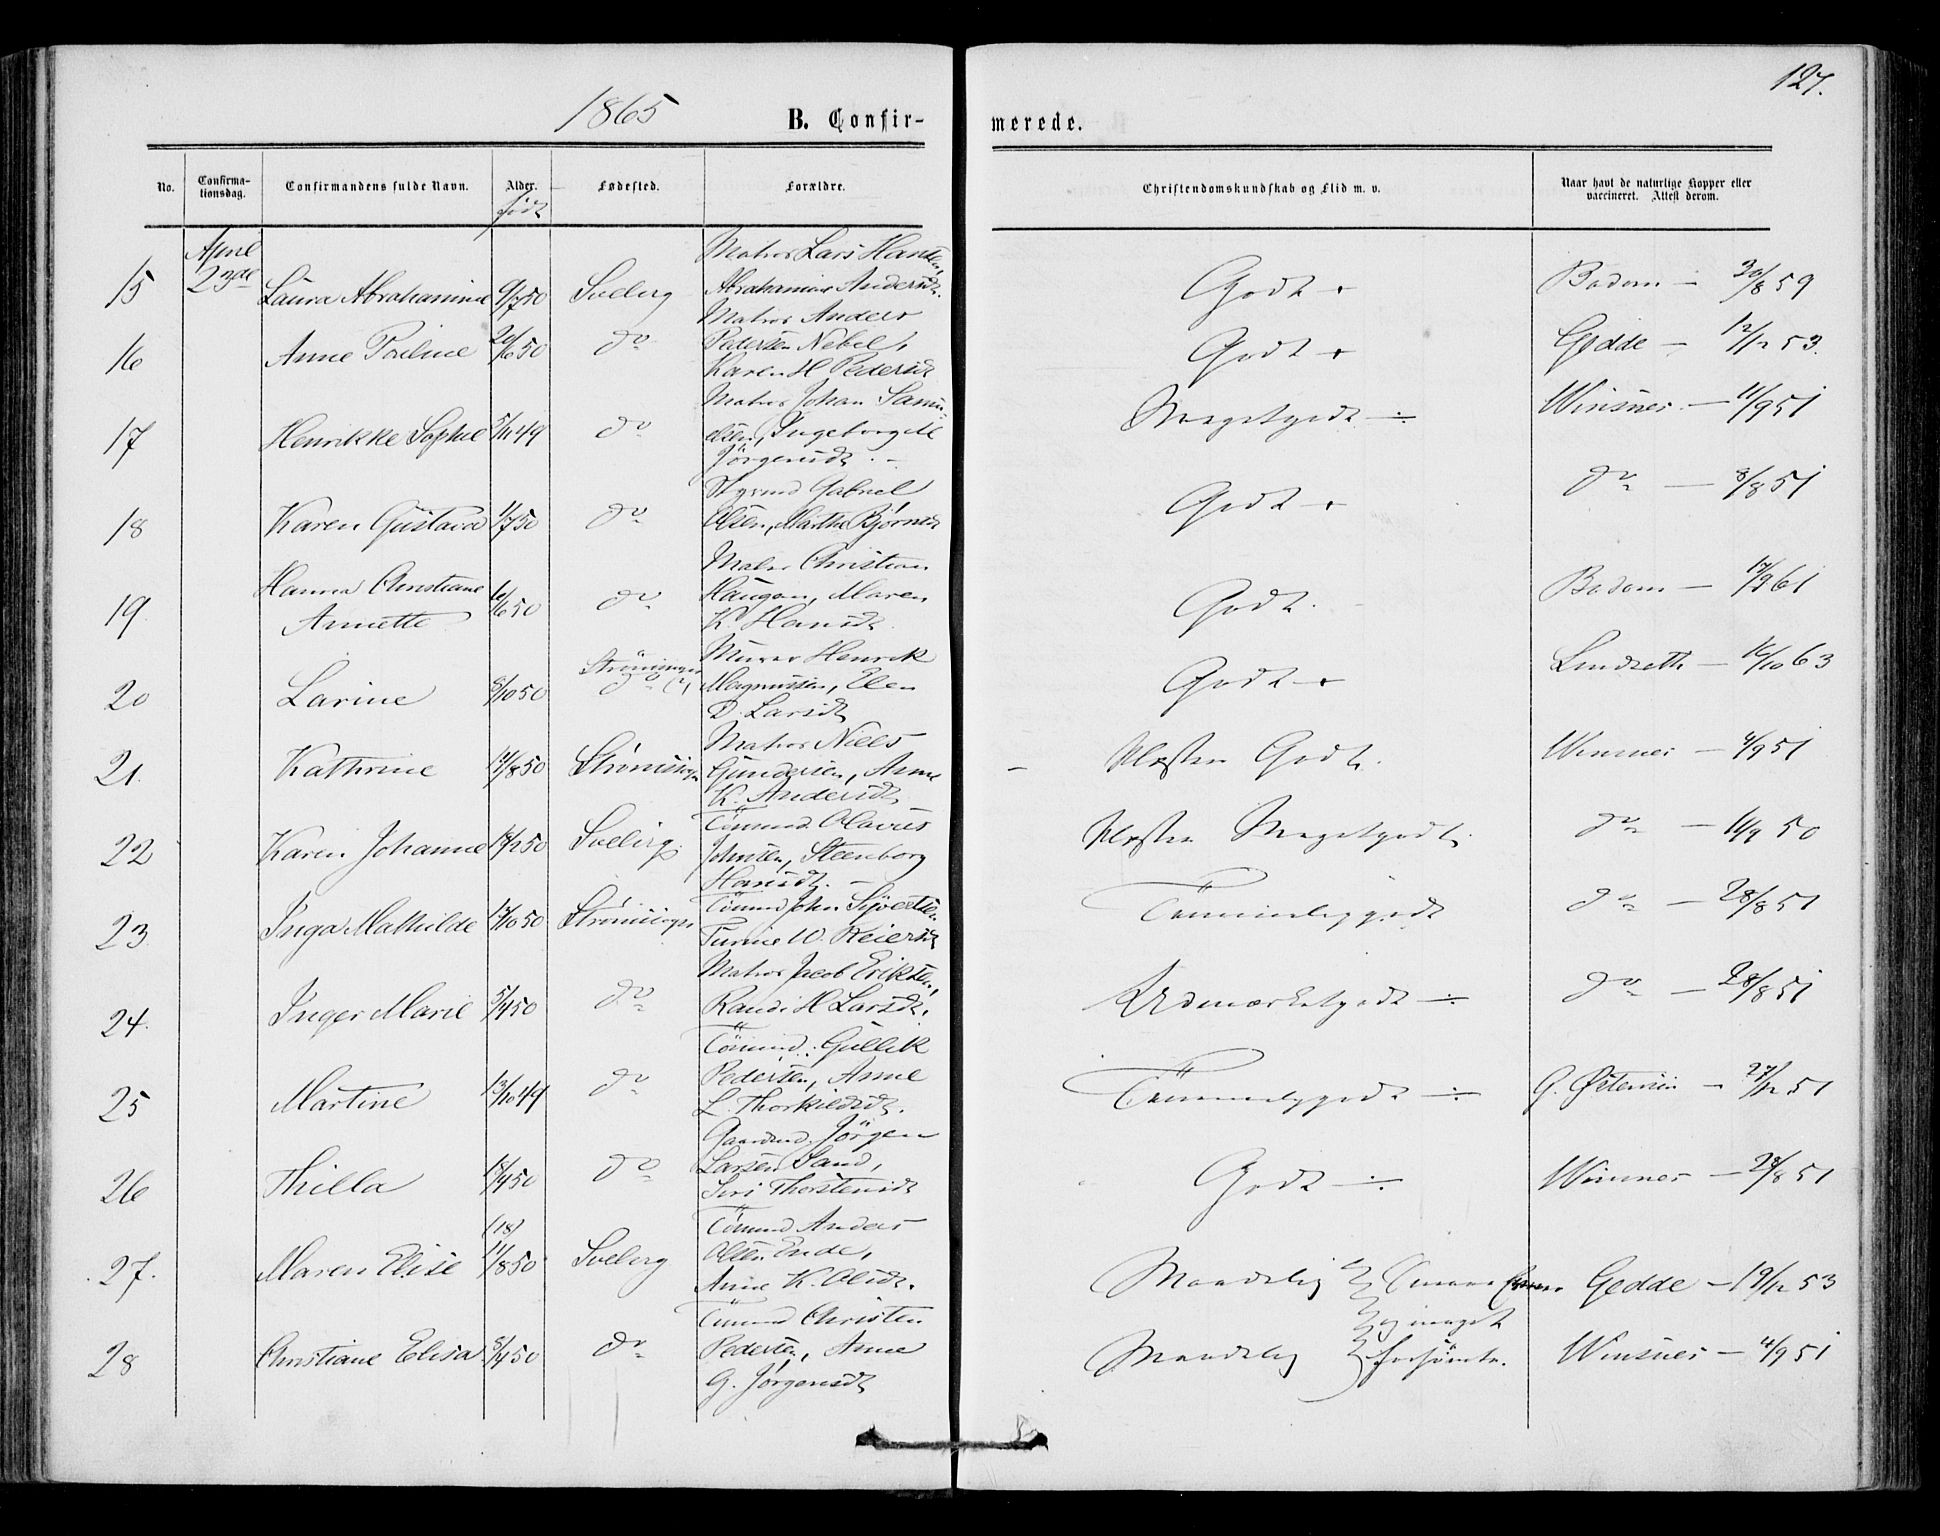 1865
B. Confir-
merede.
127.
No.
Confirma-
tionsdag.
Confirmandens fulde Navn.
Alder.
født
Fødested.
Forældre.
Christendomskundskab og Flid m. v.
Naar havt de naturlige Kopper eller
vaccineret. Attest derom.
April
23de
15 Laura Abrahamine 9/7 50 Svelvig Matros Lars Hansen,
Abrahamine Andersdt. Godt + Badom - 30/8 59
16 Anne Pauline 20/6 50 do Matros Anders
Pedersen Nebel,
Karen H Pedersdt Godt + Gedde - 12/12 53.
17 Henrikke Sophie 5/11 49 do Matros Johan Samu-
elsen, Ingeborg M
Jörgensdt. - Megetgodt ÷ Winsnes - 11/9 51
18 Karen Gustava 1/7 50 do Styrmd Gabriel
Olsen, Marthe Bjørnsdt Godt + do - 8/8 51
19. Hanna Christiane
Annette 10/6 50 do Maler Christian
Haugan, Maren
K. Hansdt. Godt. Badom - 17/9 61
20 Larine 8/10 50 Strömmen
do (?) Murer Henrik
Magnussen, Elen
D. Larsdt Godt + Lindseth - 16/10 63
21. Kathrine 14/8 50 Matros Niels
Gundersen, Anne
K. Andersdt. Næsten Godt. Winsnes - 4/9 51
22 Karen Johanne 18/12 50 Svelvig. Tömmd. Olavus
Johnsen, Steenborg
Hansdt. - Næsten Megetgodt. do - 11/9 50
23 Inga Mathilde 15/10 50 Tömmd John Sjversen.
W. Reiersdt Temmeliggodt do - 28/8 51
24. Inger Marie 5/4 50 do Matros Jacob Eriksen,
Randi H Larsdt. Udmærketgodt ÷ do - 28/8 51
25 Martine 13/10 49 do Tömmd. Gullik
Pedersen, Anne
L. Thorkildsdt. Temmeliggodt ÷ G. Østensen - 27/12 51
26 Thilla 18/4 50 do Gaardmd. Jörgen
Larsen Sand,
Siri Thorstensdt Godt ÷ Winsnes - 28/8 51
27. Maren Elise (18)
11/8 50 Svelvig Tömmd Anders
Olsen Ende,
Anne K. Olsdt. Maadelig Gedde - 19/12 53
28 Christiane Elisa 8/4 50 do Tömmd Christen
Pedersen, Anne
G. Jørgensdt Maadelig og meget
forsömte. Winsnes - 4/9 51